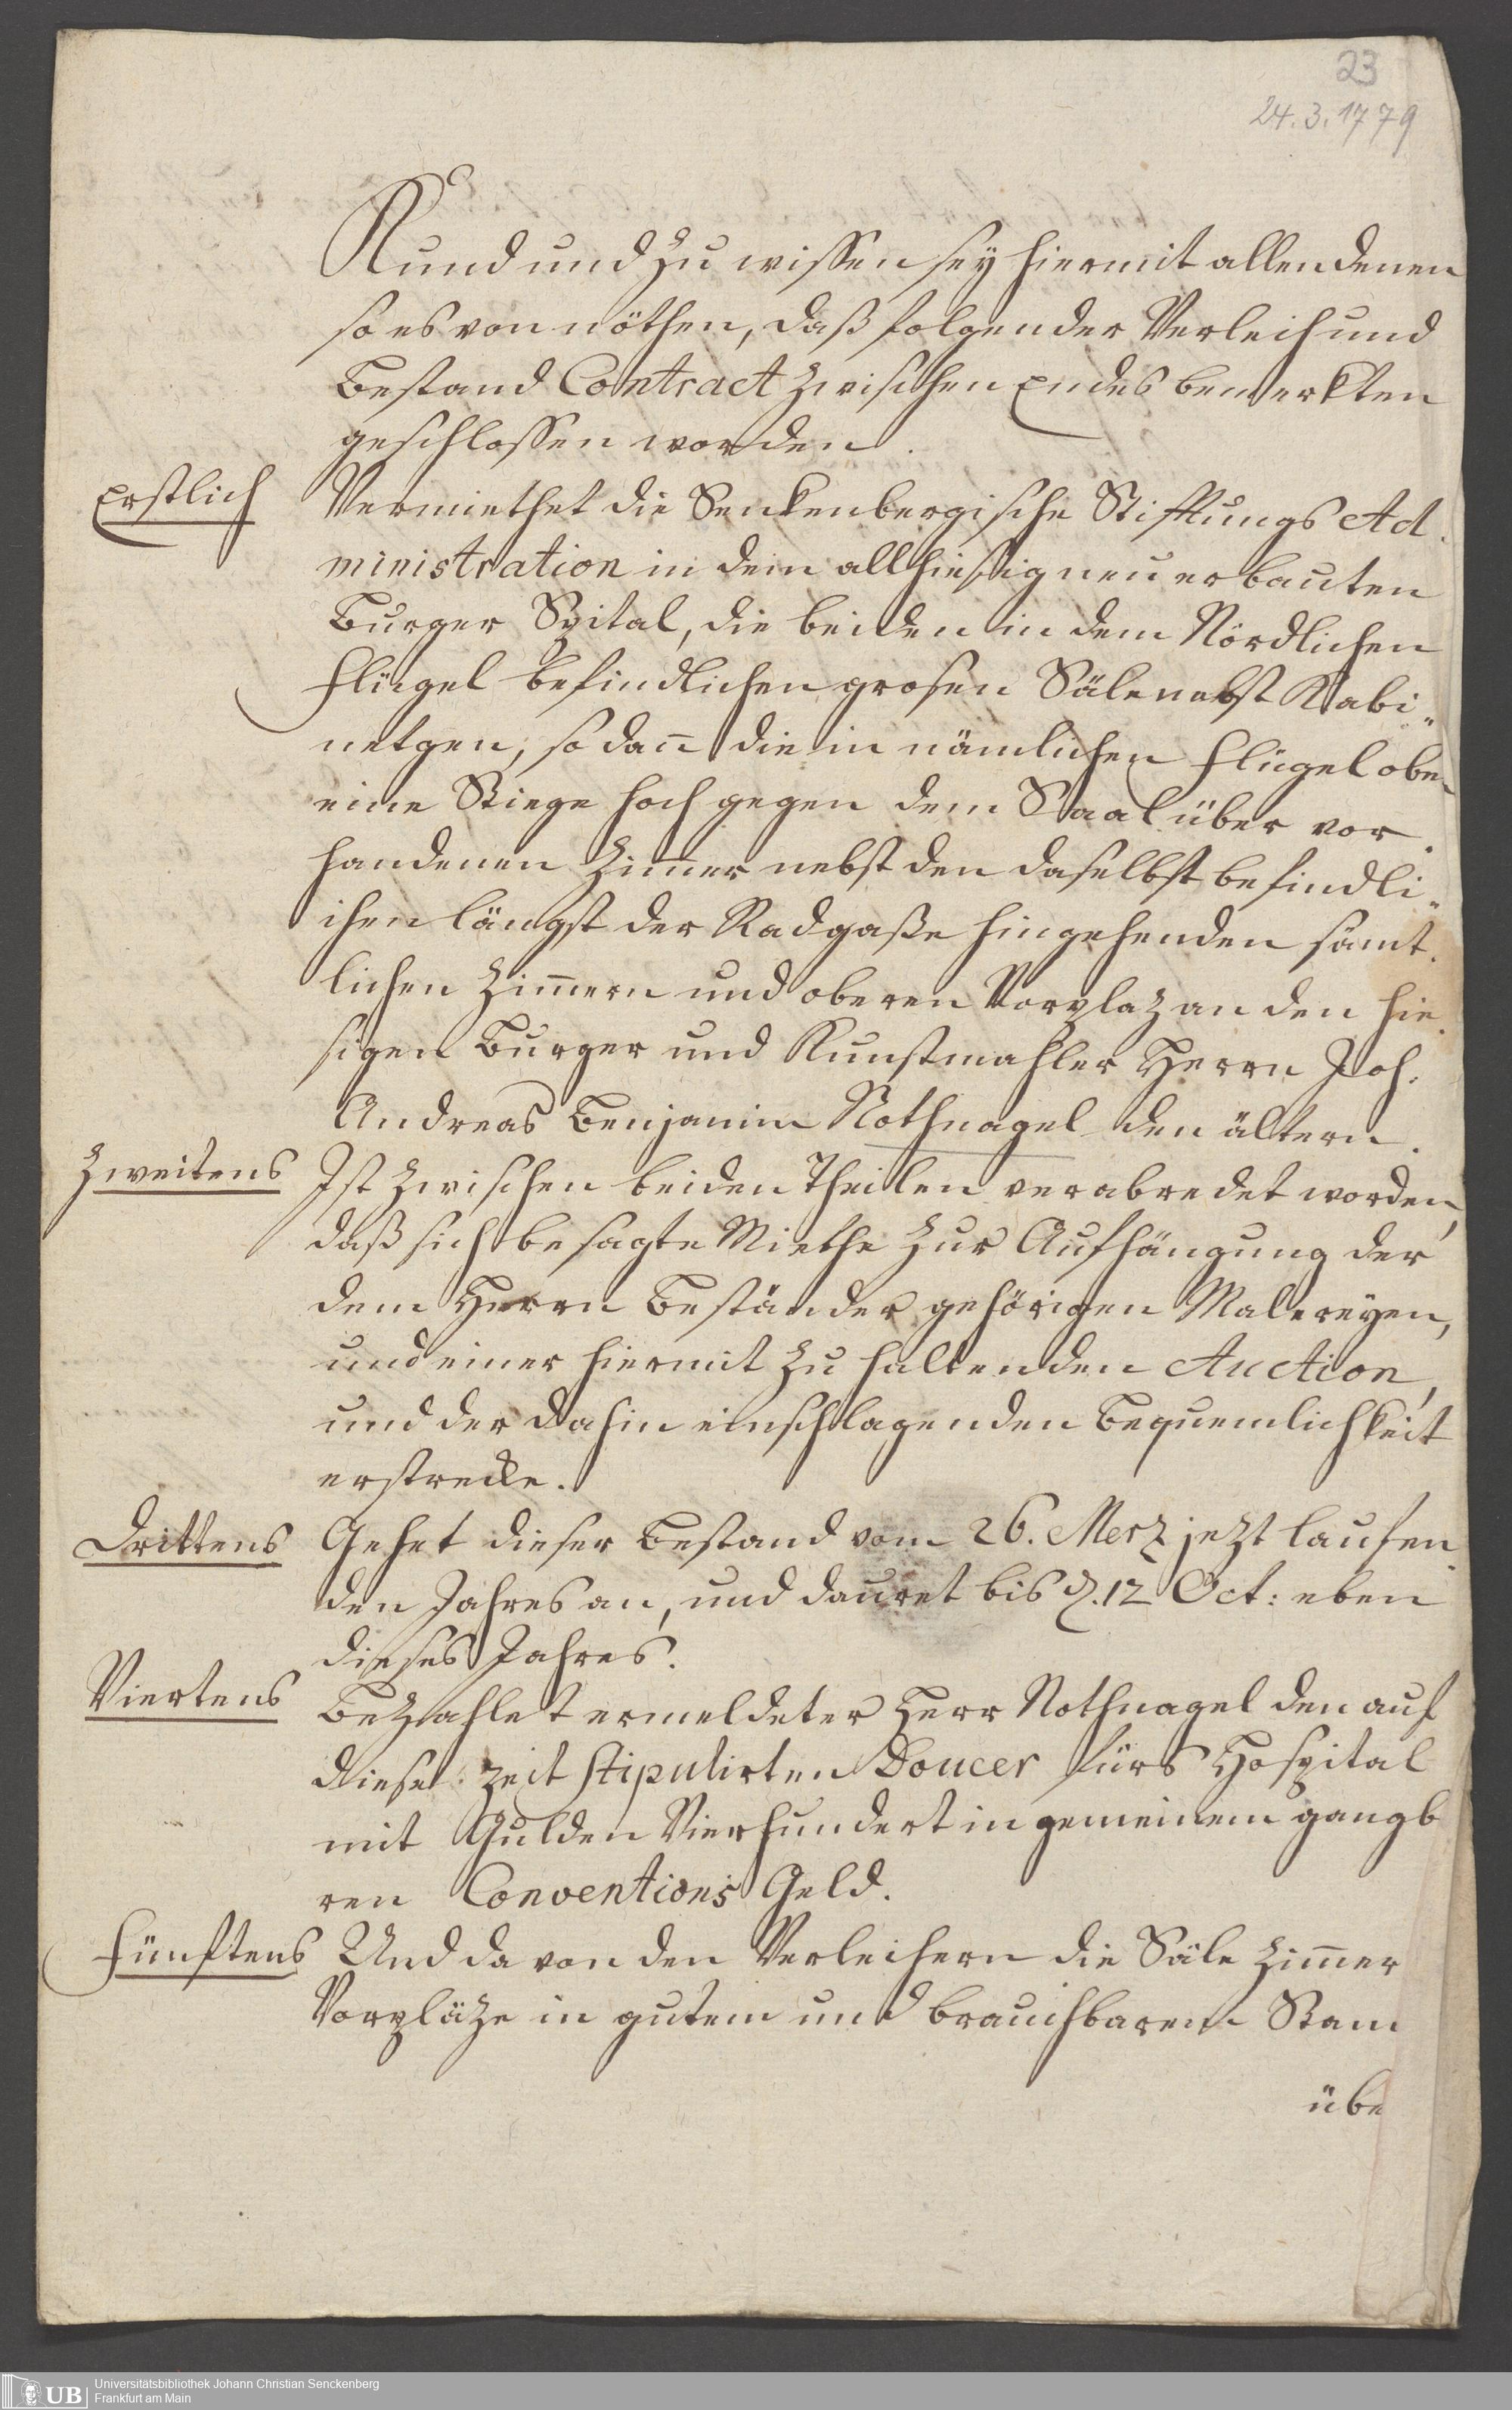 23
24.3.1779
Kund und zu wissen sey hiermit allen denen
so es von nöthen, daß folgender Verleih und
Bestand Contract zwischen Endes bemerkten
geschlossen worden.
Erstlich Vermiethet die Senkenbergische Stiftungs Ad-
ministration in dem allhiesig neu erbauten
Burger Spital, die beiden in dem Nördlichen
Flügel befindlichen grosen Säle nebst Kabi-
netgen, so dan̄ die in nämlichen Flügel oben
eine Stiege hoch gegen dem Saal über vor-
handenen Zim̄er nebst den daselbst befindli-
chen längst der Radgaße hingehenden sämt-
lichen Zim̄ern und oberen Vorplaz an den hie-
sigen Burger und Kunstmahler Herrn Joh.
Andreas Benjamin Nothnagel den ältern.
Zweitens Ist zwischen beiden Theilen verabredet worden,
daß sich besagte Miethe zur Aufhängung der
dem Herrn Beständer gehörigen Malereyen,
und einer hiermit zu haltenden Auction,
und der dahin einschlagenden Bequemlichkeit
erstrecke.
Drittens Gehet dieser Bestand vom 26. Merz jezt laufen-
den Jahres an, und dauret bis d. 12 Oct: eben
dieses Jahres.
Viertens Bezahlet ermeldeter Herr Nothnagel den auf
diese Zeit stipulirten Doucer fürs Hospital
mit Gulden Vierhundert in gemeinem gangb
ren Conventions Geld.
Fünftens Und da von den Verleihern die Säle Zim̄er
Vorpläze in gutem und brauchbarem Stan
übe
UB
Universitätsbibliothek Johann Christian Senckenberg
Frankfurt am Main